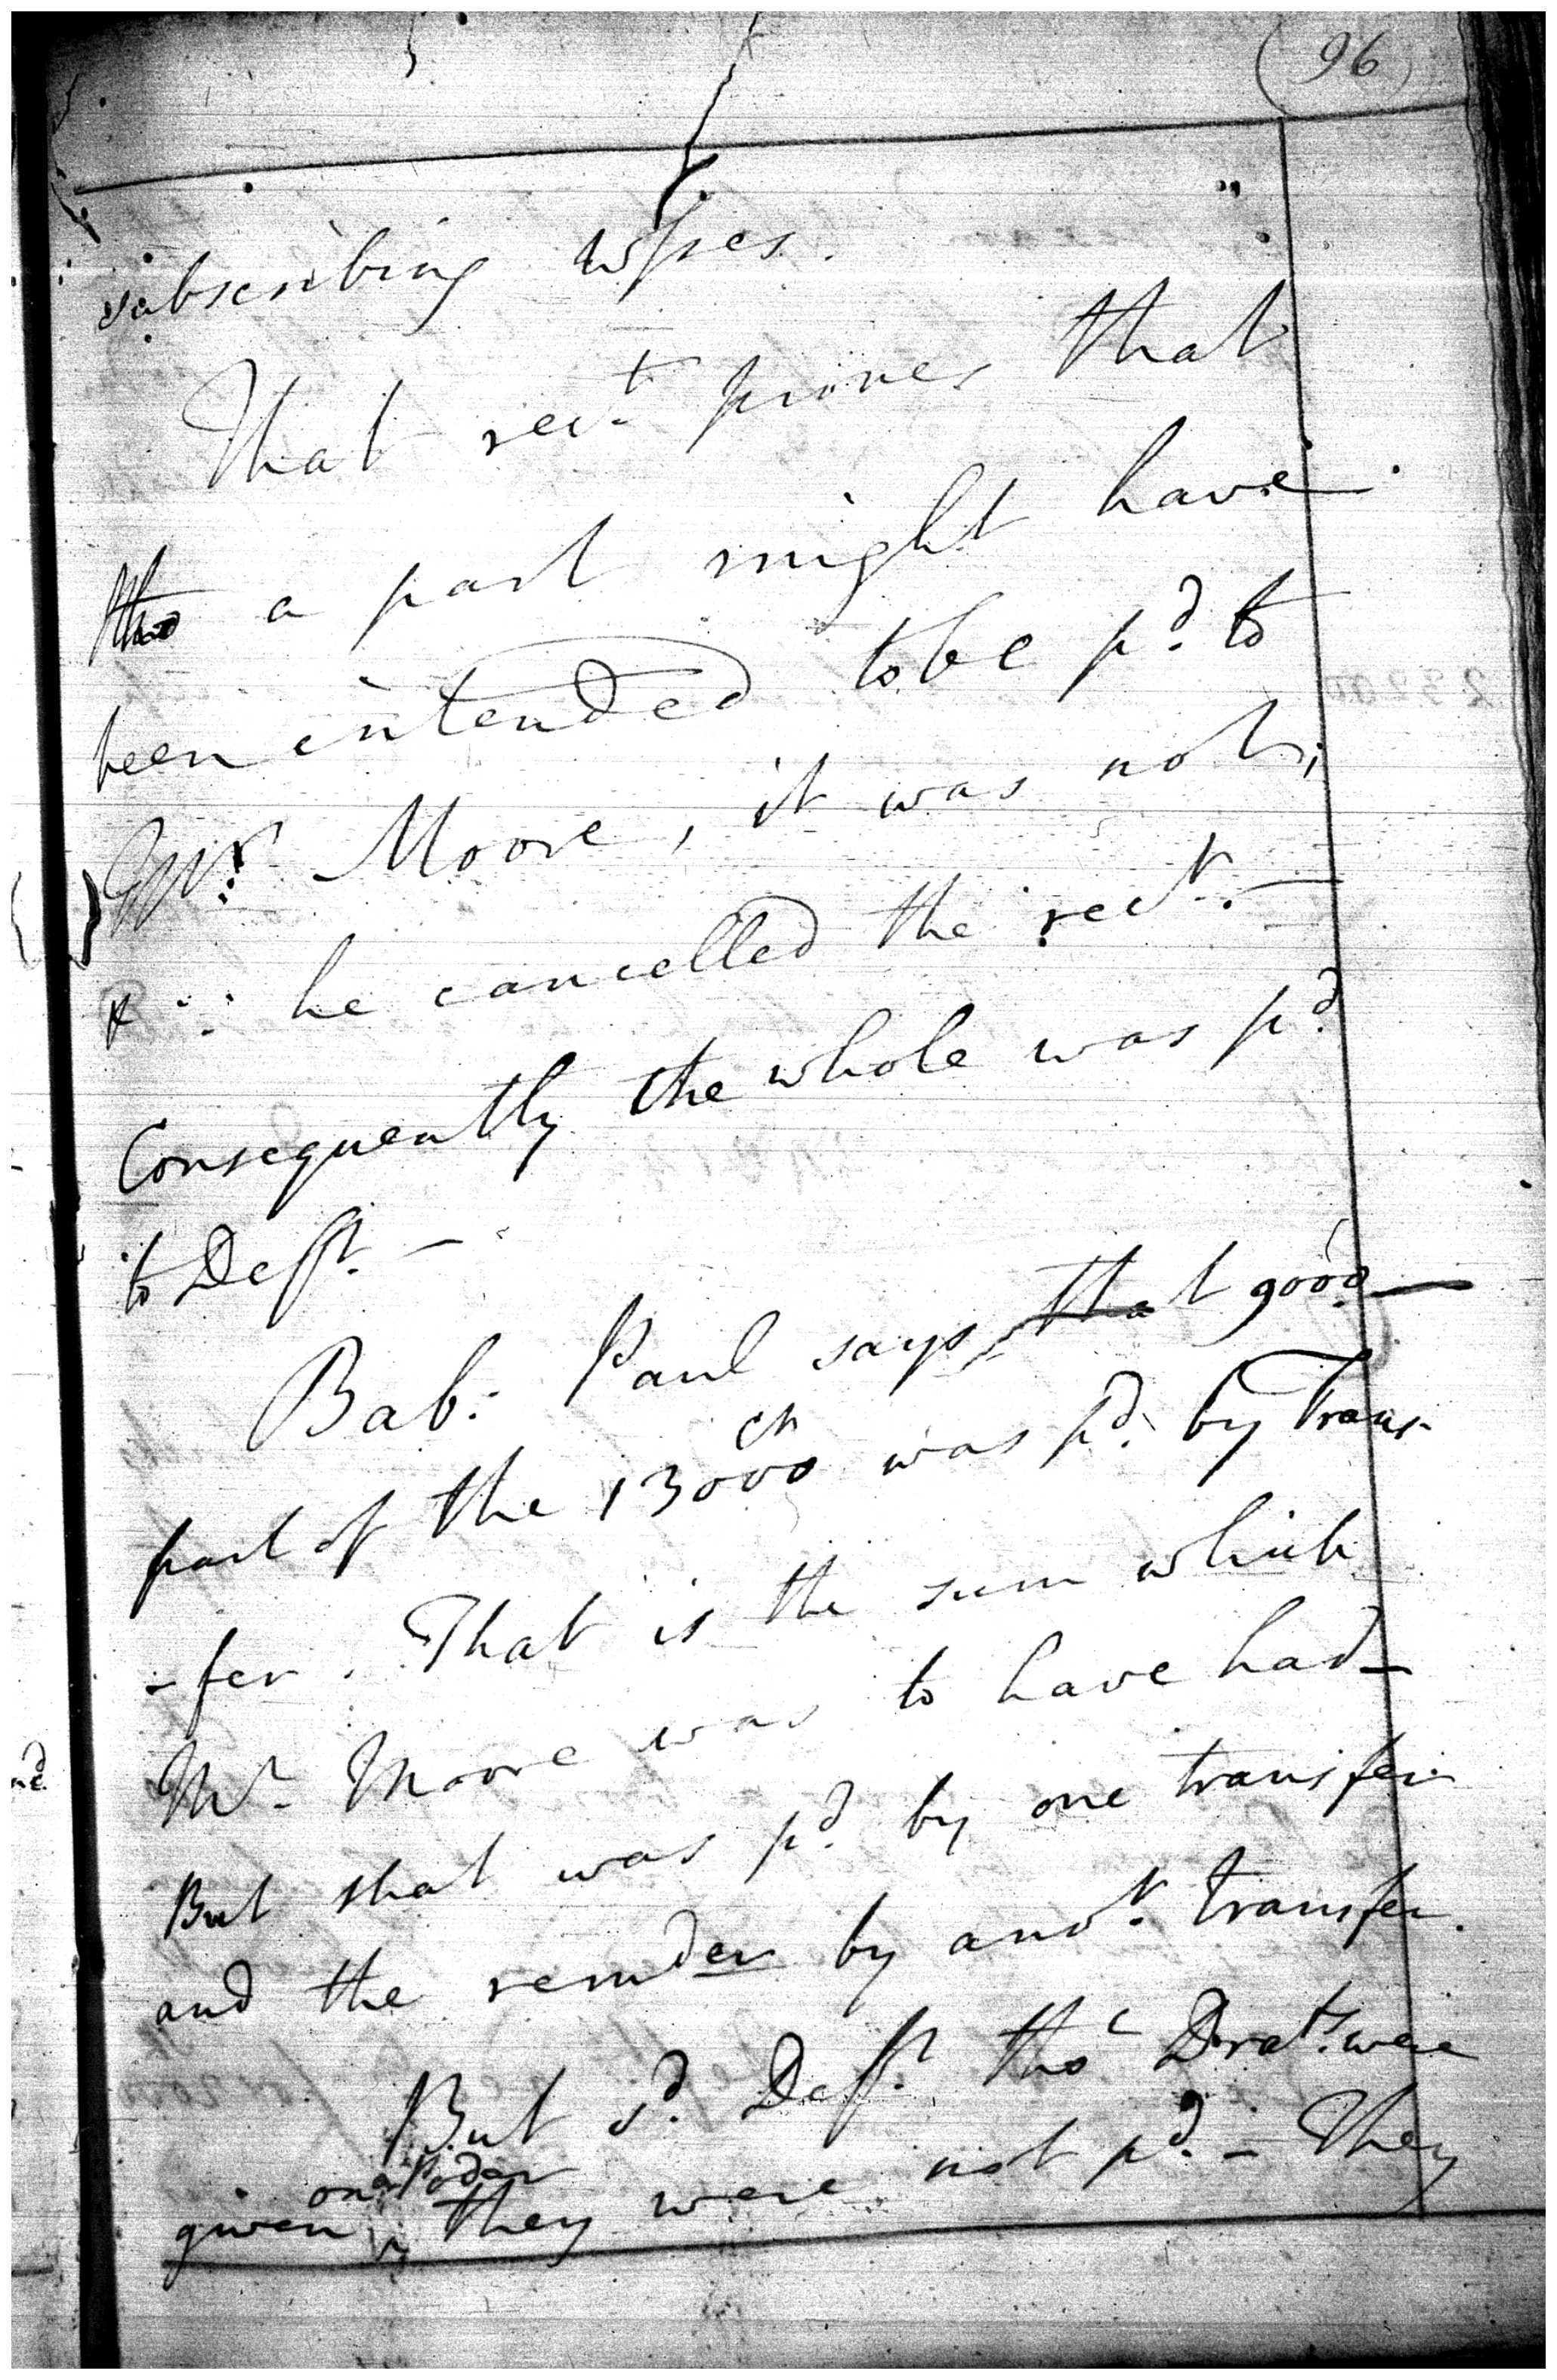 (96)
subscribing wsses.
That rect. proves that
tho a part might have
been intended to be pd. to
Mr. Moore, it was not;
& ∵ he cancelled the rect. —
Consequently the whole was pd.
to Deft. —
Bab: Paul says that good
part of the 13000 was pd. by Trans-
-fer. That is the sum which
Mr. Moore was to have had —
But that was pd. by one transfer
and the remder by anor. transfer.
But sd. Deft. tho' Drats. were
given, they were not pd. — They